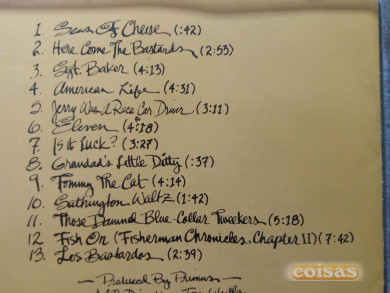 1. Seas Of Cheese (:42)
2. Here Come The Bastards (2:53)
3. Sgt. Baker (4:13)
4. American Life (4:31)
5. Jerry Was A Race Car Driver (3:11)
6. Eleven (4:18)
7. Is It Luck? (3:27)
8. Grandad's Little Ditty (:37)
9. Tommy The Cat (4:14)
10. Sathington Waltz (1:42)
11. Those Damned Blue-Collar Tweekers (5:18)
12. Fish On (Fisherman Chronicles, Chapter II) (7:42)
13. Los Bastardos (2:39)
Produced By Primus
coisas